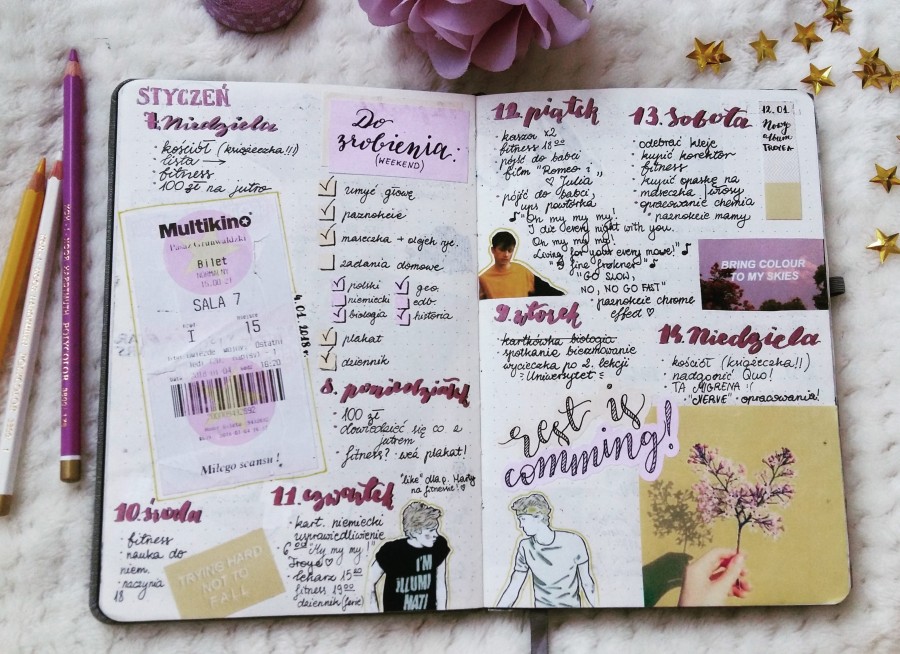 STYCZEŃ
7. Niedziela
• kościół (książeczka!!!)
• lista →
• fitness
• 100 zł na jutro
Multikino
Pasaż Grunwaldzki
Bilet
NORMALNY
SALA 7
I 15
Miłego seansu!
4.01.2018 r.
Do
zrobienia:
(WEEKEND)
umyć głowę
paznokcie
maseczka + olejek ryc.
zadania domowe
polski geo.
niemiecki edb.
biologia historia
plakat
dziennik
8. poniedziałek
• 100 zł
• dowiedzieć się co z
jutrem
• fitness? weź plakat!
10. środa
• fitness
• nauka do
niem.
• naczynia
18
TRYING HARD
NOT TO
FALL
11. czwartek
"like" dla p. Marty
na fitnessie! ♡
• kart. niemiecki
• usprawiedliwienie
• 6 00 "My my my!"
Troye ♡
• lekarz 15 40
• fitness 19 00
• dziennik (ferie)
I'M
ILLUMI
NATI
12. piątek
• kaszor x2
• fitness 18 00
• pójść do babci
• film "Romeo i
♡ Julia"
• pójść do babci,
ups powtórka
♪ "Oh my my my!
I die every night with you.
Oh my my my!
Living for your every move!" ♪
"GO SLOW,
NO, NO GO FAST"
• paznokcie chrome
effect ♡
13. sobota
• odebrać kleje
• kupić korektor
• fitness
• kupić opaskę na
• maseczka / włosy
• opracowanie chemia
• paznokcie mamy
12.01
Nowy
album
TROYE'A
BRING COLOUR
TO MY SKIES
9. wtorek
• kartkówka biologia
• spotkanie bierzmowanie
• wycieczka po 2. lekcji
• Uniwersytet •
14. Niedziela
• kościół (książeczka!!)
• nadgonić Quo!
• TA MIGRENA :(
• "NERVE" • opracowania!
rest is
comming!